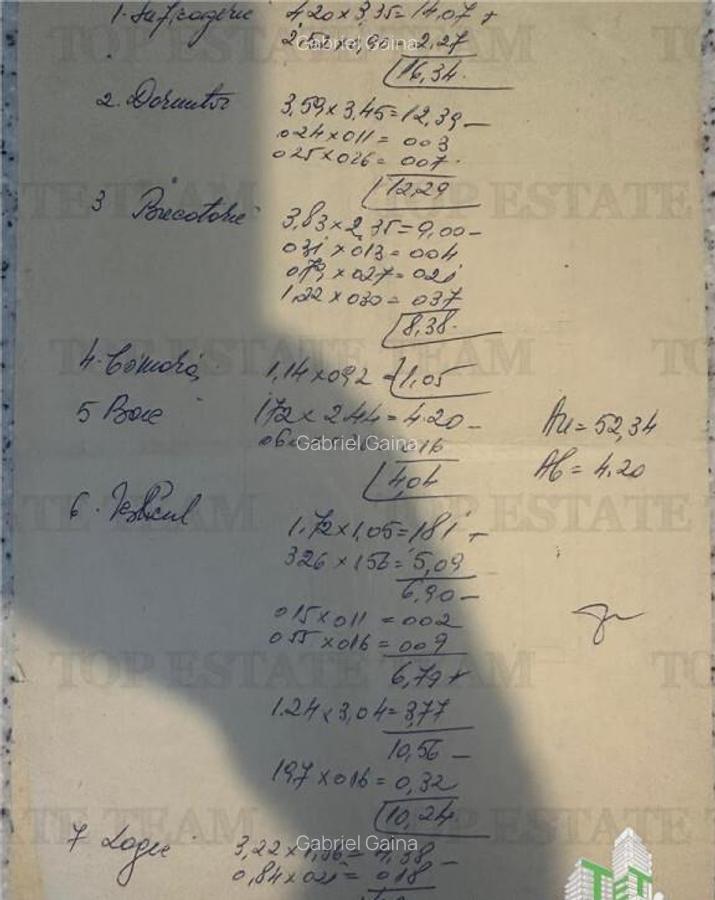 1. Sufragerie 4.20 x 3,35 = 14,07 +
2,52 x 0,90 = 2,27
16,34.
2. Dormitor 3,59 x 3,45 = 12,39 -
024 x 011 = 003
025 x 026 = 007.
12,29
3 Bucatarie 3,83 x 2,35 = 9,00 -
031 x 013 = 004
079 x 027 = 021
1,22 x 030 = 037
8,38.
4. Cămară 1,14 x 092 = 1,05
5 Baie 1,72 x 2.44 = 4.20 -
016
4,04
Au = 52,34
Ab = 4.20
6. Vestibul
1.72 x 1,05 = 181 +
326 x 156 = 5,09
6,90 -
015 x 011 = 002
055 x 016 = 009
6,79 +
1.24 x 3,04 = 3,77
10,56 -
197 x 016 = 0,32
10,24
7 Logie 3,22 x 1,36 = 4,38 -
0,84 x 021 = 018
Gabriel Gaina
Gabriel Gaina
Gabriel Gaina
TOP ESTATE TEAM
TOP ESTATE TEAM
TOP ESTATE TEAM
TOP ESTATE TEAM
TET